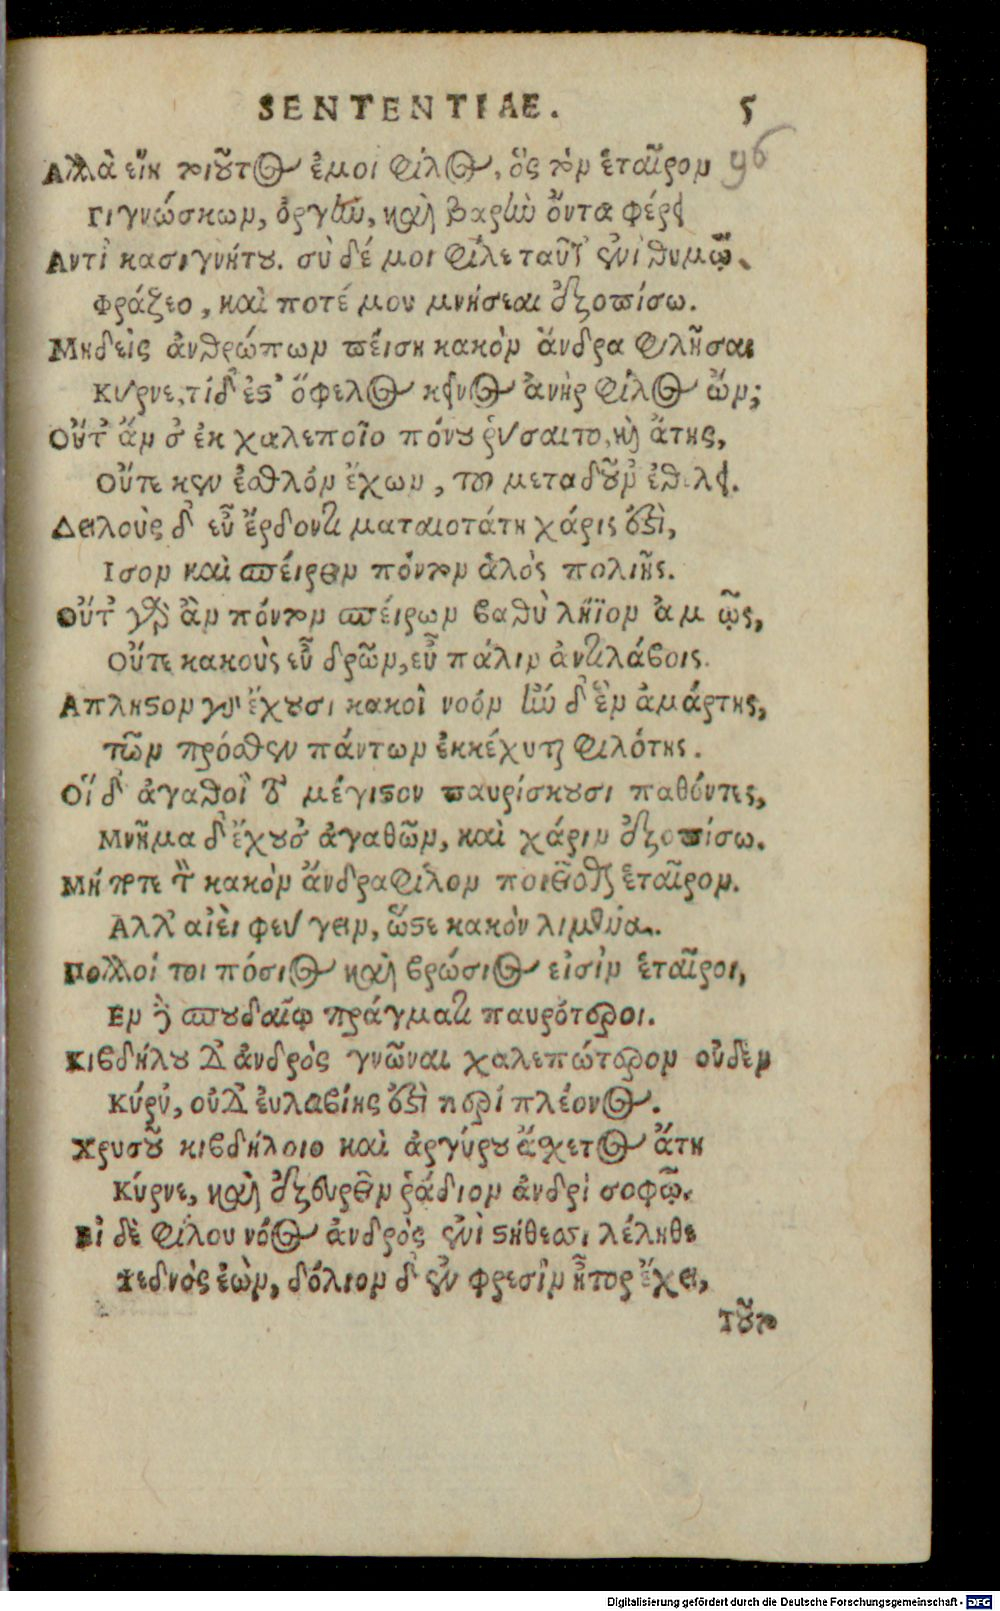 SENTENTIAE. 5
96
Αλλὰ εἴη τοιοῦτος ἐμοι φίλος, ὃς τὸν ἑταῖρον
Γιγνώσκων, ὀργὴν, καὶ βαρὺν ὄντα φέρει
Αντὶ κασιγνήτου. σὺ δέ μοι φίλε ταῦτ' ἐνὶ θυμῷ.
Φράζεο, καὶ ποτέ μου μνήσεαι ἐξοπίσω.
Μηδεὶς ἀνθρώπων πείση κακὸν ἄνδρα φιλῆσαι
Κύρνε, τί δ' ἐστ' ὄφελος κεῖνος ἀνὴρ φίλος ὤν;
Οὔτ' ἄν σ' ἐκ χαλεποῖο πόνου ῥύσαιτο, καὶ ἄτης,
Οὔτε κεν ἐσθλὸν ἔχων, του μεταδοῦν ἐθέλει.
Δειλοὺς δ' εὖ ἔρδοντι ματαιοτάτη χάρις ἐστὶ,
Ισον καὶ σπείρειν πόντον ἁλὸς πολιῆς.
Οὔτ' γὰρ ἂν πόντον σπείρων βαθὺ λήϊον ἀμῷς,
Οὔτε κακοὺς εὖ δρῶν, εὖ πάλιν ἀντιλάβοις.
Απληστον γὰρ ἔχουσι κακοὶ νοόν ἢν δ' ἓν ἁμάρτης,
τῶν πρόσθεν πάντων ἐκκέχυται φιλότης.
Οἵ δ' ἀγαθοὶ τὸ μέγιστον παυρίσκουσι παθόντες,
Μνῆμα δ' ἔχουσ' ἀγαθῶν, καὶ χάριν ἐξοπίσω.
Μή ποτε τὸν κακὸν ἄνδρα φίλον ποιεῖσθαι ἑταῖρον.
Αλλ' αἰὲι φεύγειν, ὥστε κακὸν λιμένα.
Πολλοί τοι πόσιος καὶ βρώσιος εἰσὶν ἑταῖροι,
Εν δὲ σπουδαίῳ πράγματι παυρότεροι.
Κιβδήλου δ' ἀνδρὸς γνῶναι χαλεπώτερον οὐδὲν
Κύρν', οὐδ' ἐυλαβίης ἐστὶ περί πλέονος.
Χρυσοῦ κιβδήλοιο καὶ ἀργύρου ἄσχετος ἄτη
Κύρνε, καὶ ἐξευρεῖν ῥάδιον ἀνδρὶ σοφῷ.
Εἰ δὲ φίλου νόος ἀνδρὸς ἐνὶ στήθεσσι λέληθε
Ψεδνὸς ἐὼν, δόλιον δ' ἐν φρεσὶν ἦτορ ἔχει,
τοῦτο
Digitalisierung gefördert durch die Deutsche Forschungsgemeinschaft - DFG